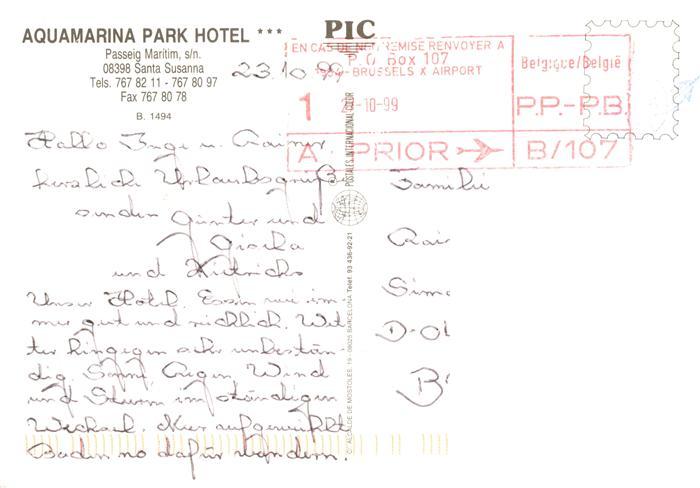 AQUAMARINA PARK HOTEL ***
Passeig Marítim, s/n.
08398 Santa Susanna
Tels. 767 82 11 - 767 80 97
Fax 767 80 78
B. 1494
PIC
EN CAS DE NON REMISE RENVOYER A
P.O. Box 107
1934 - BRUSSELS X AIRPORT
Belgique/België
1
-10-99
P.P.-P.B.
A PRIOR
B/107
POSTALES INTERNACIONAL COLOR
C/. ALCALDE DE MOSTOLES, 19 - 08025 BARCELONA Telef. 93 436-92-21
23.10.99
Hallo Inge u. Rainer,
herzliche Urlaubsgrüße
senden Günter und
Gisela
und
Unser Hotel, Essen wie im
mer gut und reichlich. Wet
ter hingegen sehr unbestän
dig. Sonne, Regen, Wind
und Sturm im ständigen
Wechsel. Meer aufgewühlt
Baden no dafür wandern.
Familie
Rai
Sim
D-01
B